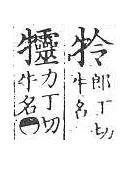 㸳
郎丁切
牛名
力丁切
牛名